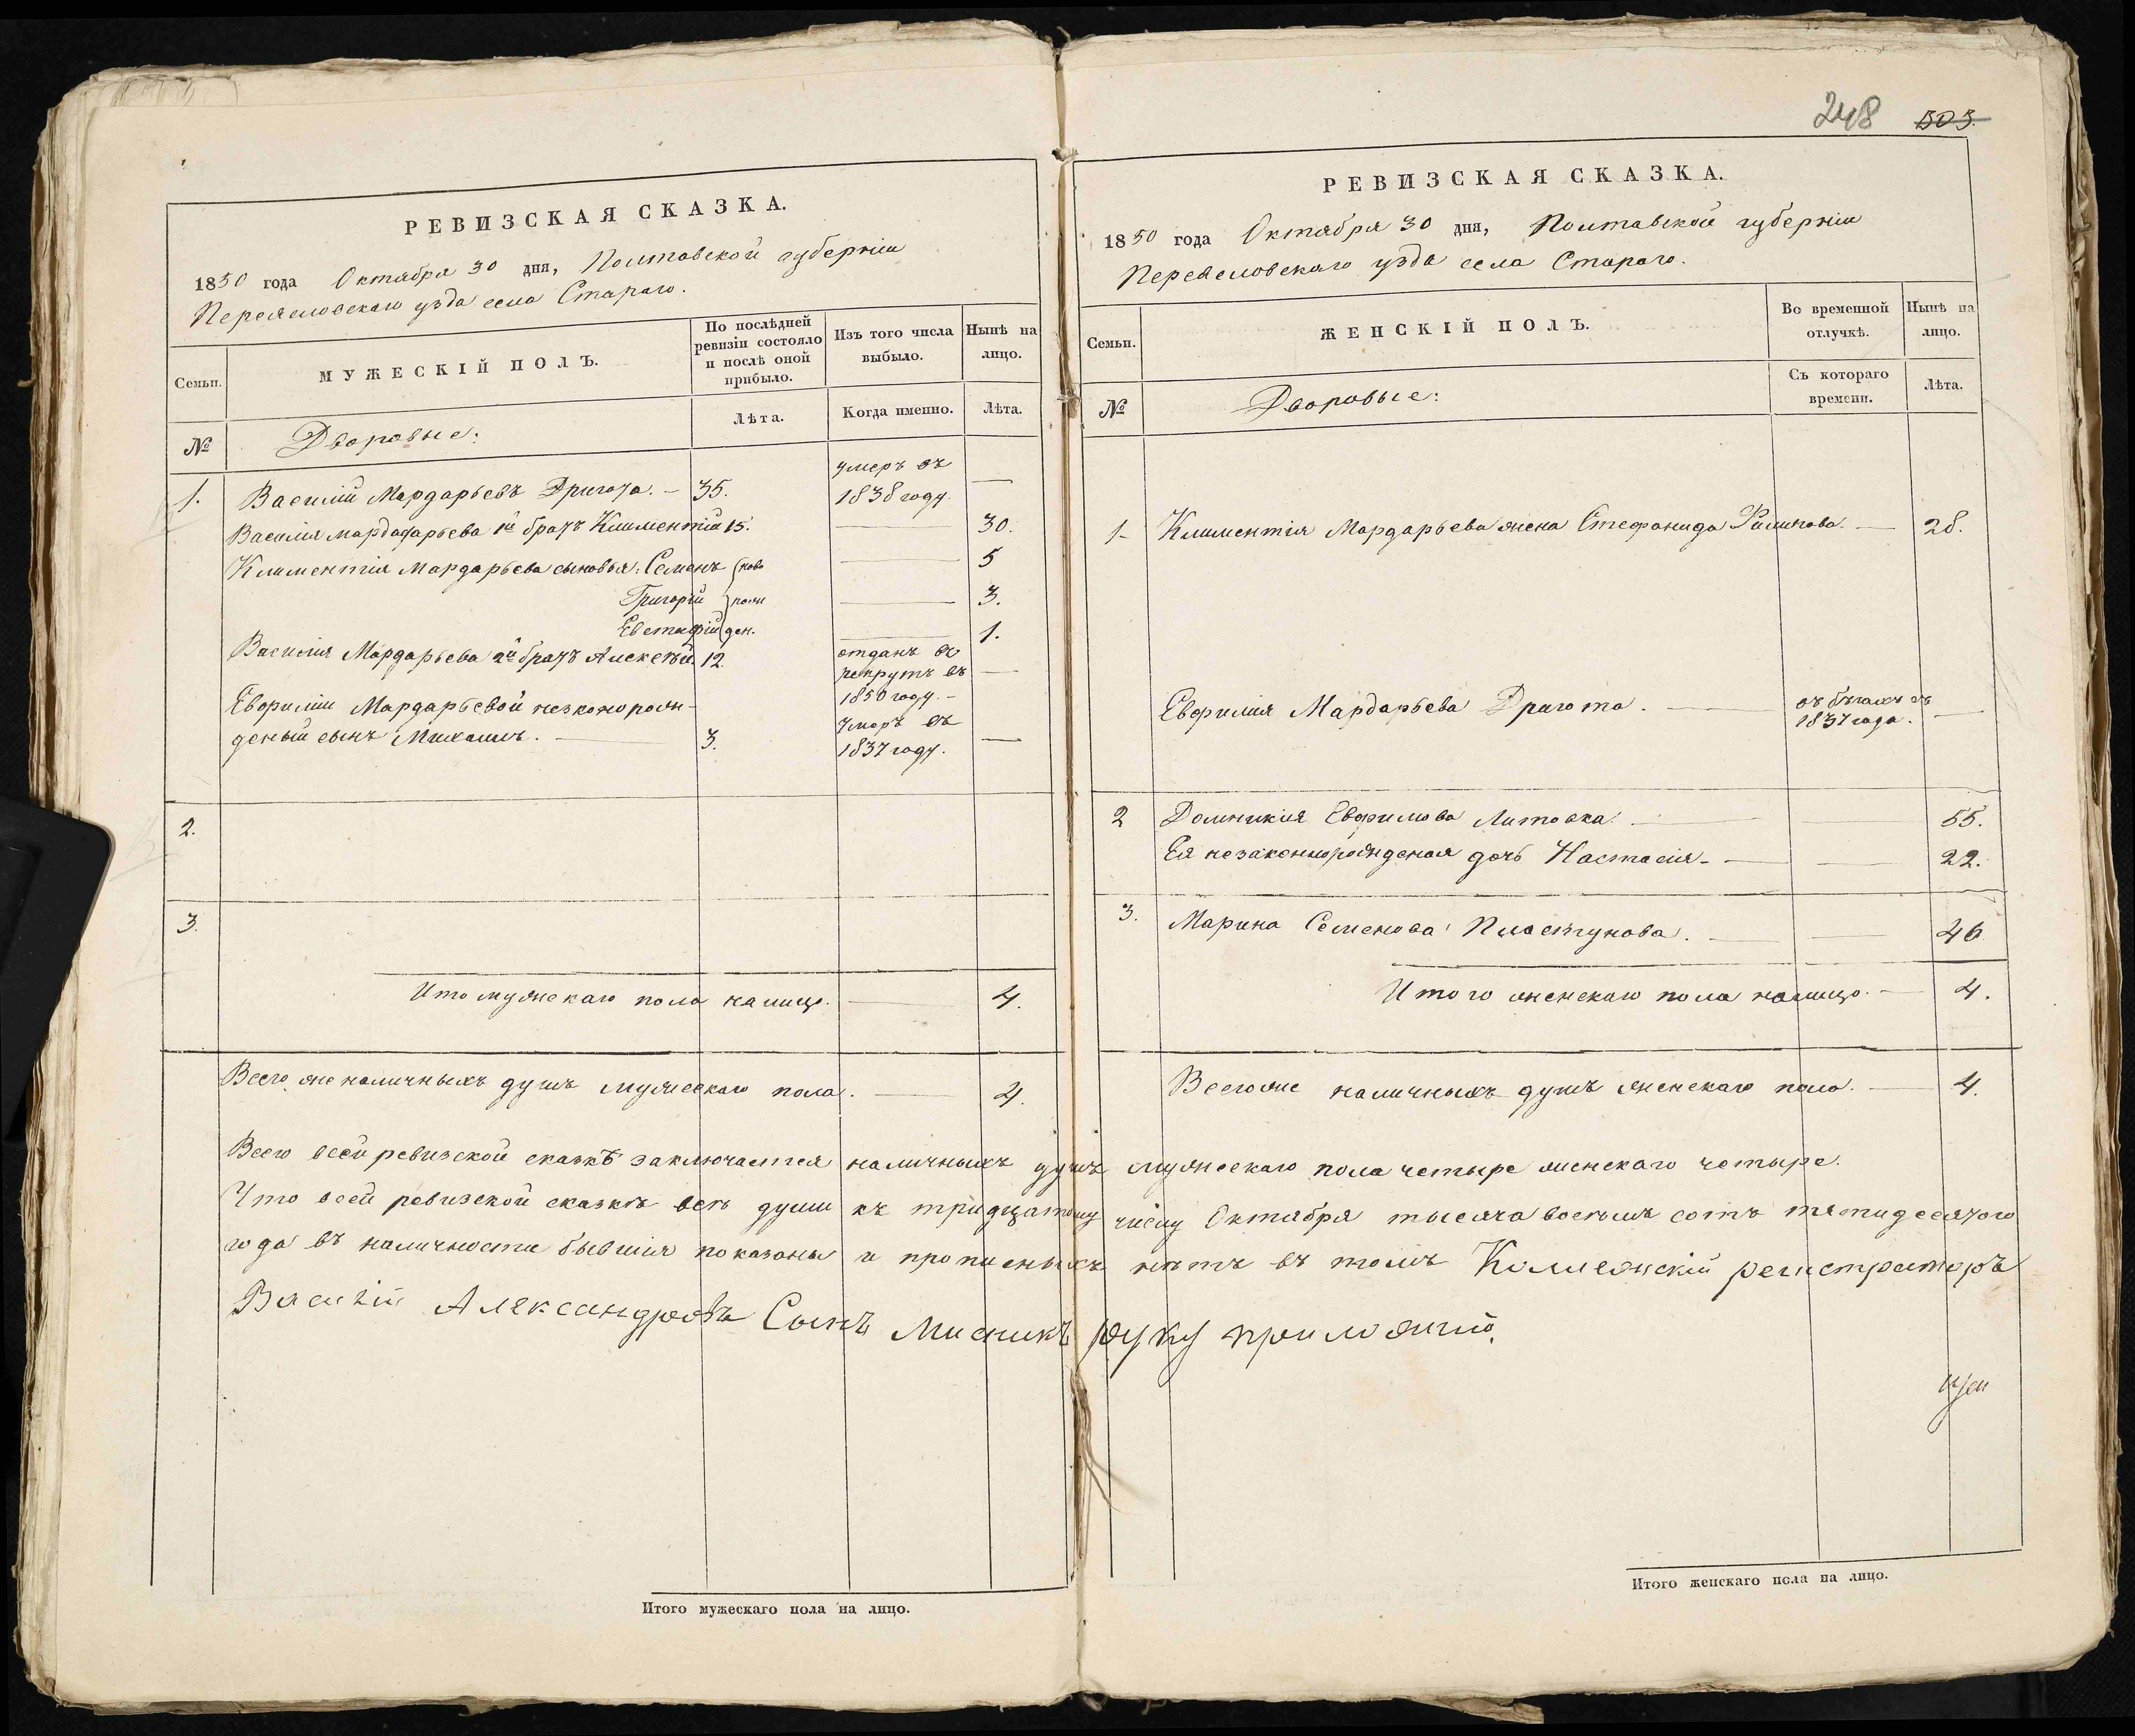 РЕВИЗСКАЯ СКАЗКА.
1850 года Октября 30 дня, Полтавской губерніи
Переяславскаго уѣзда села Стараго.
Семьи.
МУЖЕСКІЙ ПОЛЪ.
По послѣдней ревизіи состояло и послѣ оной прибыло.
Изъ того числа выбыло.
Нынѣ на лицо.
№
Дворовые:
Лѣта.
Когда именно.
Лѣта.
1. Василій Мардарьевъ Дригота. – 35. умеръ въ 1838 году. —
Василія Мардадарьева 1й братъ Климентій 15. — 30.
Климентія Мардарьева сыновья: Семенъ ново — 5
Григорій рож — 3.
Евстафій ден. — 1.
Василія Мардарьева 2й братъ Алексѣй. 12. отданъ въ рекруты въ 1850 году. – —
Евфиміи Мардарьевой незконорож-
деный сынъ Михаилъ. — 3. Умеръ въ 1837 году. —
2.
3.
Итого мужескаго пола налицо. — 4.
Всего же наличныхъ душъ мужескаго пола. — 4.
248 505.
РЕВИЗСКАЯ СКАЗКА.
1850 года Октября 30 дня, Полтавской губерніи
Переяславскаго уѣзда села Стараго.
Семьи.
ЖЕНСКІЙ ПОЛЪ.
Во временной отлучкѣ.
Нынѣ на лицо.
№
Дворовые:
Съ котораго времени.
Лѣта.
1- Климентія Мардарьева жена Стефанида Филипова. — 28.
Евфимія Мардарьева Дригота. — въ бѣгахъ съ 1837 года. —
2 Домникія Евфимова Литовка. — 55.
Ея незаконнорожденая дочь Настасія- — 22.
3. Марина Семенова Пластунова. — 46
Итого женскаго пола налицо. — 4.
Всего же наличныхъ душъ женскаго пола. — 4.
Всего всей ревизской сказкѣ заключается наличныхъ душъ мужескаго пола четыре женскаго четыре.
Что всей ревизской сказкѣ всѣ души къ тридцатому числу Октября тысяча восемь сотъ пятидесятого
года въ наличности бывшія показаны и прописныхъ нѣтъ въ томъ Колежскій регистраторъ
Василій Александровъ Сынъ руку приложилъ.
Итого мужескаго пола на лицо.
Итого женскаго пола на лицо.